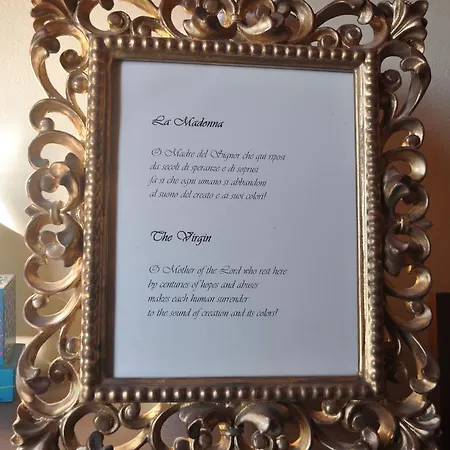 La Madonna
O Madre del Signor che qui riposi
da secoli di speranze e di soprusi
fa si che ogni umano si abbandoni
al suono del creato e ai suoi colori!
The Virgin
O Mother of the Lord who rest here
by centuries of hopes and abuses
makes each human surrender
to the sound of creation and its colors!